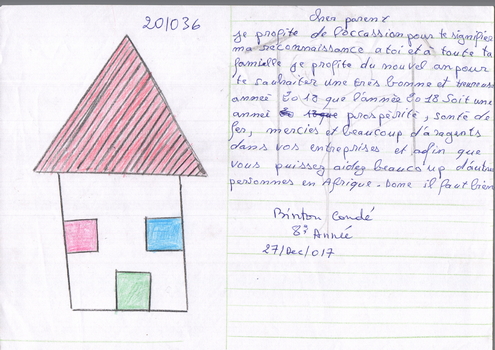 20/036
Cher parent
je profite de l'occassion pour te signifier
ma reconnaissance a toi et a toute ta
famielle je profite du nouvel an pour
te souhaiter une très bonne et heureuse
année 2018 que l'année 2018 Soit une
anneé prospérité, santé de
fer, merciés et beaucoup d'argents
dans vos entreprises et afin que
vous puissez aidez beaucoup d'autre
personnes en Afrique. Donc il faut bien
Binton Condé
8è Année
27/Dec/017